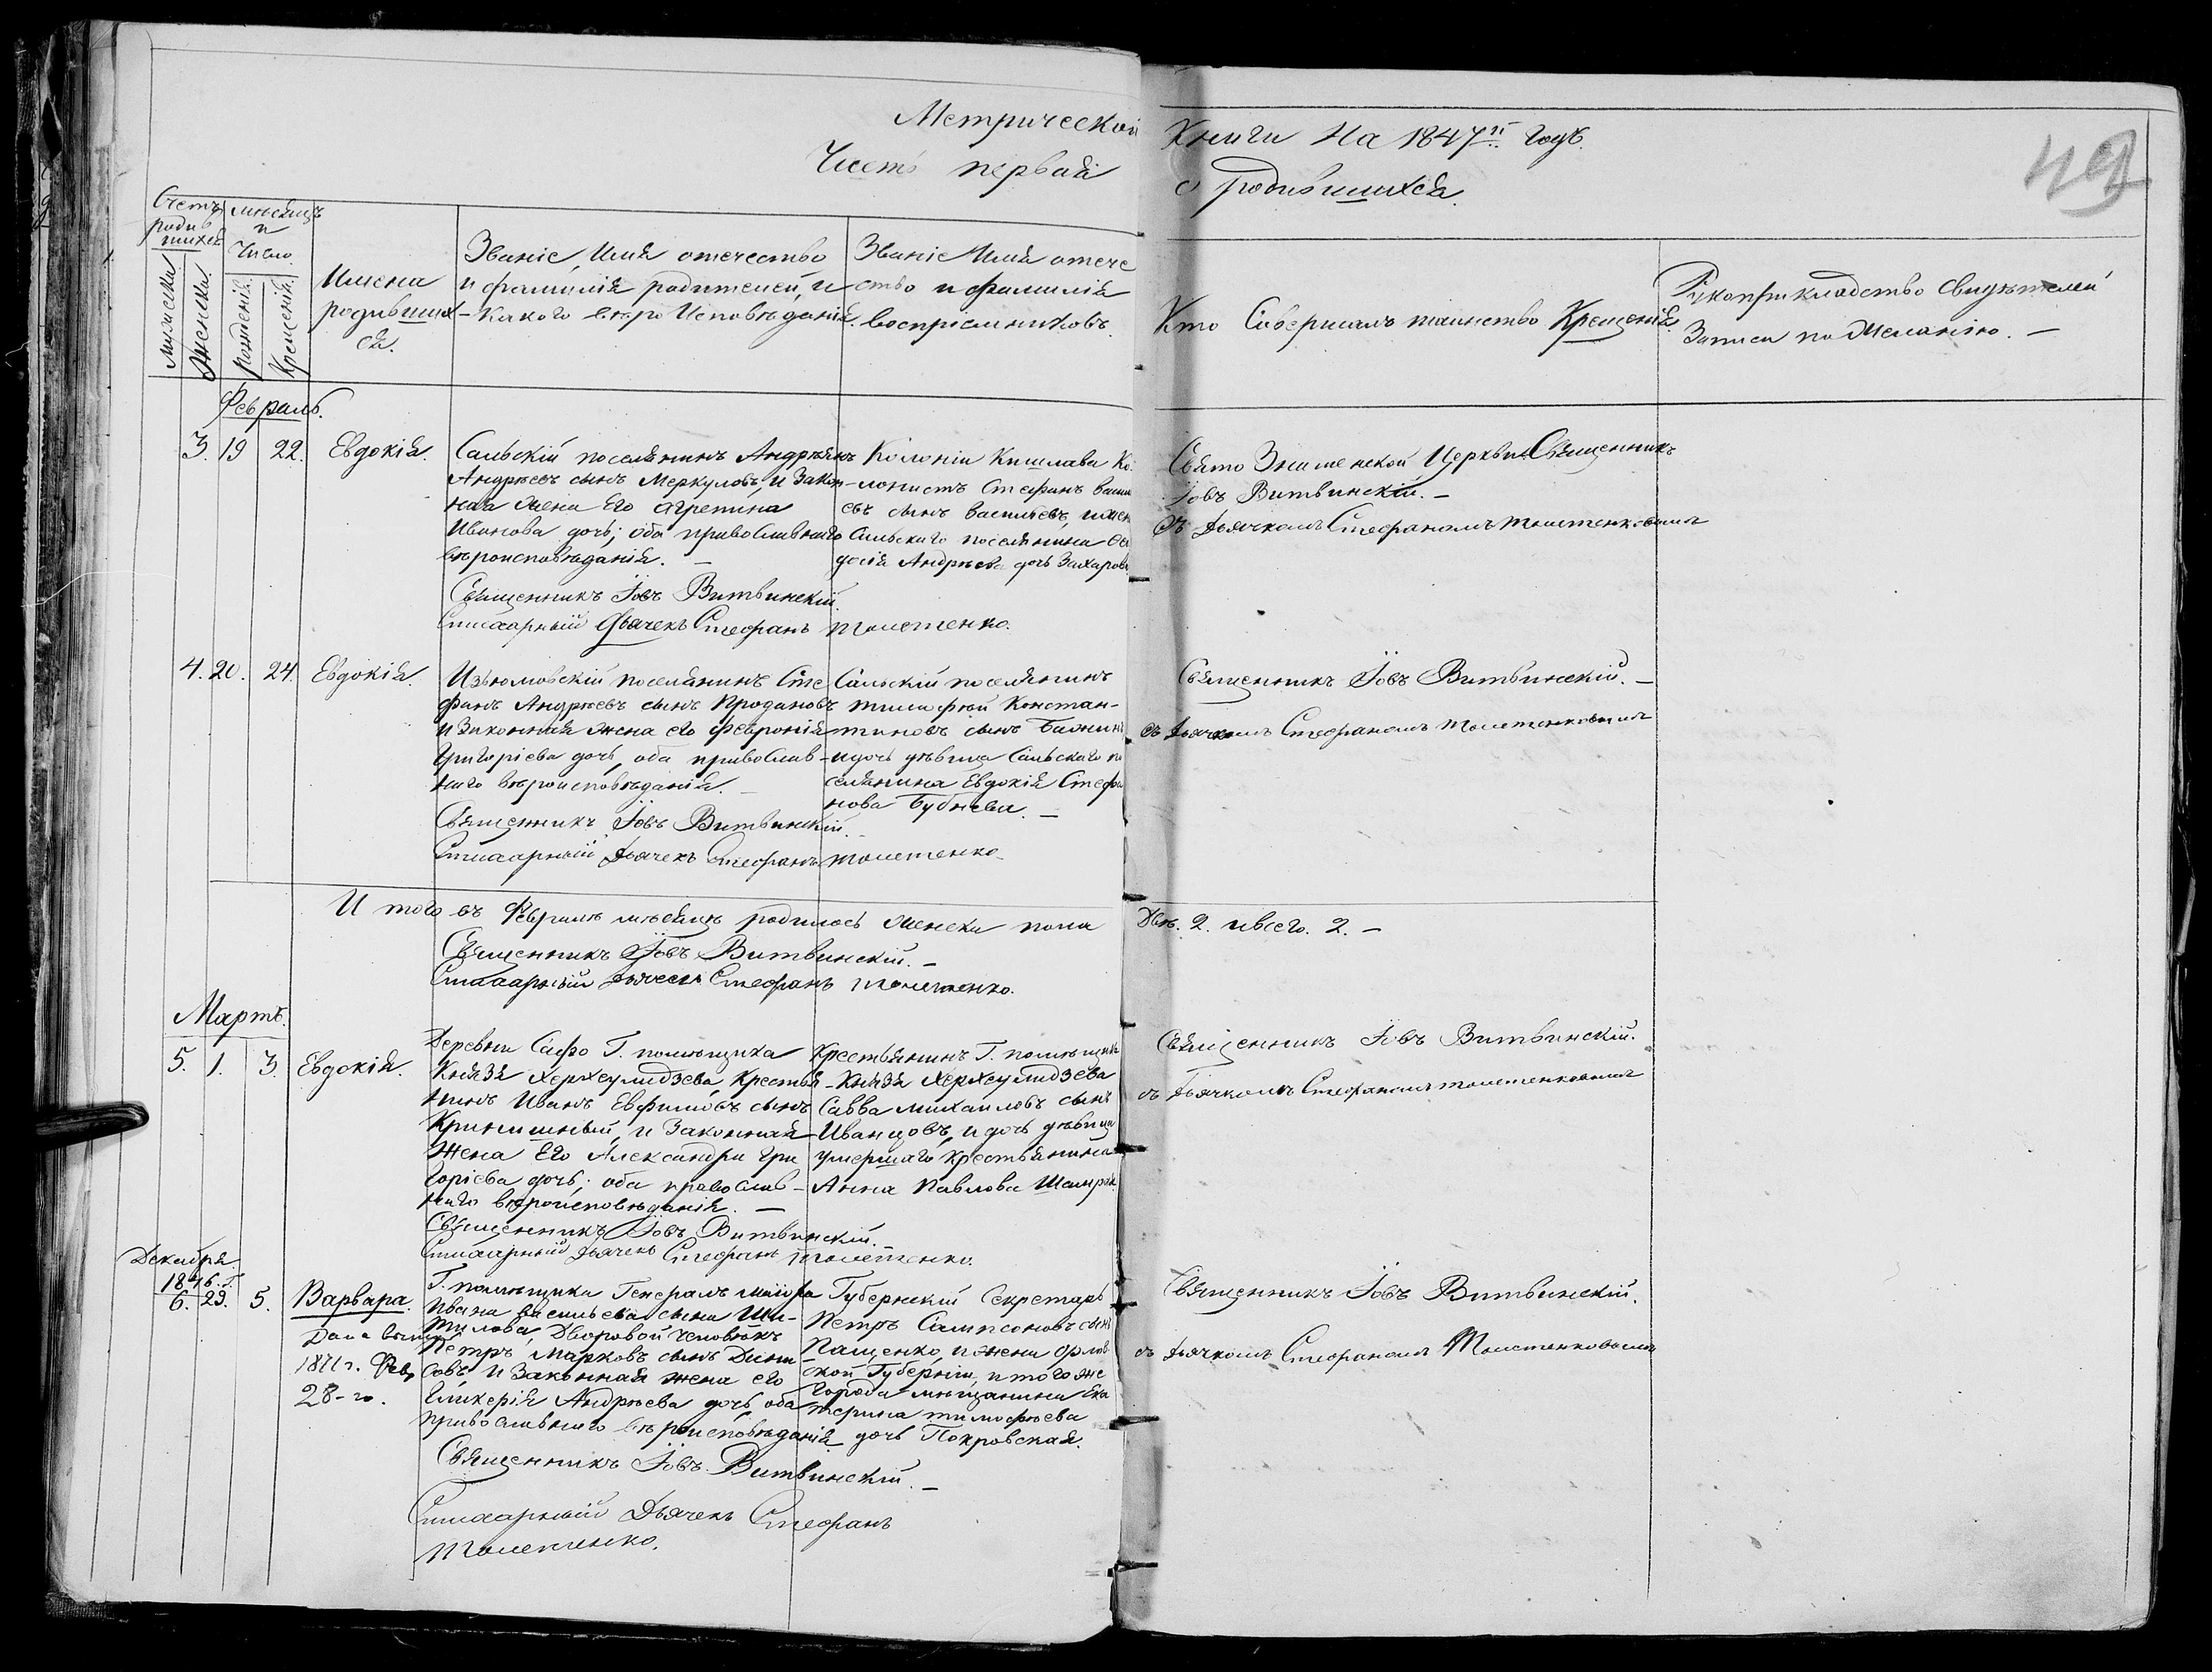 Метрической Книги на 1847й годъ.
Часть первая о родившихся.
49
Счетъ родившихся
мѣсяцъ и число.
Мужеска
Женска.
рожденія.
Крещенія.
Имена родившихся.
Званіе, Имя отечество
и фамилія родителей, и
какого вѣроисповѣданія.
Званіе Имя отече
ство и фамилія
воспріемниковъ.
Кто Совершалъ таинство Крещенія.
Рукоприкладство свидѣтелей
Записи по Желанію. —
Февраль.
3. 19 22. Евдокія.
Сальскій поселянинъ Андреянъ
Андреевъ сынъ Меркуловъ, и закон-
ная жена его Агрепина
Иванова дочь; оба православнаго
вѣроисповѣданія. —
Священникъ Іовъ Витвинскій.
Стихарный Дьячекъ Стефанъ
Колоніи Кишлава Ко-
лонистъ Стефанъ
евъ сынъ Васильевъ, и жен
Сальскаго поселянина
досія Андреева дочь Захарова
Свято Знаменской Церкви Священникъ
Іовъ Витвинскій. —
съ Дьячкомъ Стефаномъ
4. 20. 24. Евдокія.
Изюмовскій поселянинъ Сте
фанъ Андреевъ сынъ Продановъ
и законная жена его Февронія
Григоріева дочь, оба православ-
наго вѣроисповѣданія. —
Священникъ Іовъ Витвинскій.
Стихарный Дьячекъ Стефанъ
Сальскій поселянинъ
Тимофей Констан-
тиновъ сынъ
и дочь дѣвица Сальскаго по
селянина Евдокія Стефа
нова Бубнева. —
Священникъ Іовъ Витвинскій. —
съ Дьячкомъ Стефаномъ
И того въ Февралѣ мѣсяцѣ родилось женска пола Двѣ. 2. и всего. 2. —
Священникъ Іовъ Витвинскій. —
Стихарный Дьячекъ Стефанъ
Мартъ.
5. 1. 3. Евдокія.
Деревни Г. помѣщика
Князя Херхеулидзева, Крестья-
нинъ Иванъ Евфимовъ сынъ
и законная
жена Его Александра Гри
горіева дочь; оба православ-
наго вѣроисповѣданія. —
Священникъ Іовъ Витвинскій. —
Стихарный Дьячекъ Стефанъ
Крестьянинъ Г. помѣщика
Князя Херхеулидзева
Савва Михаиловъ сынъ
Иванцовъ, и дочь дѣвица
умершаго крестьянина
Анна Павлова
Священникъ Іовъ Витвинскій.
съ Дьячкомъ Стефаномъ
Декабря.
1846. г.
6. 29. 5. Варвара.
Дана
1871 г. Фев.
28-го.
Г. помѣщика Генералъ маіора
Ивана Васильева сына Ши-
тилова, Дворовой человѣкъ
Петръ Марковъ сынъ Дени-
совъ и Законная жена его
Гликерія Андреева дочь, оба
православнаго вѣроисповѣданія
Священникъ Іовъ Витвинскій. —
Стихарный Дьячекъ Стефанъ
Губернскій Секретарь
Петръ Сампсоновъ сынъ
Пащенко, и жена Орлов
ской Губерніи, и того же
Города мѣщанина Ека
терина Тимофеева
дочь Покровская.
Священникъ Іовъ Витвинскій.
съ Дьячкомъ Стефаномъ